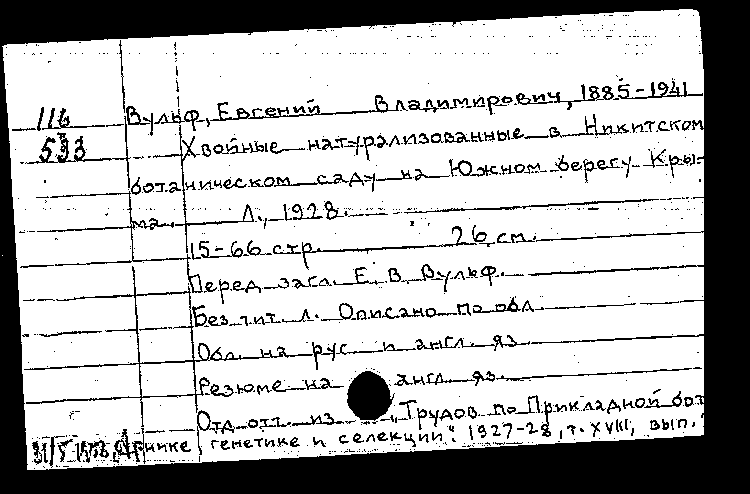 116 Вульф, Евгений Владимирович, 1885-1941
533 Хвойные натурализованные в Никитском
ботаническом саду на Южном берегу Кры-
ма. Л., 1928.
15-66 стр. 26 см.
Перед загл. Е. В. Вульф.
Без тит. л. Описано по обл.
Обл. на рус. и англ. яз.
Резюме на англ. яз.
Отд. отт. из „Трудов по Прикладной бот
генетике и селекции". 1927-28, т. XVIII, вып.